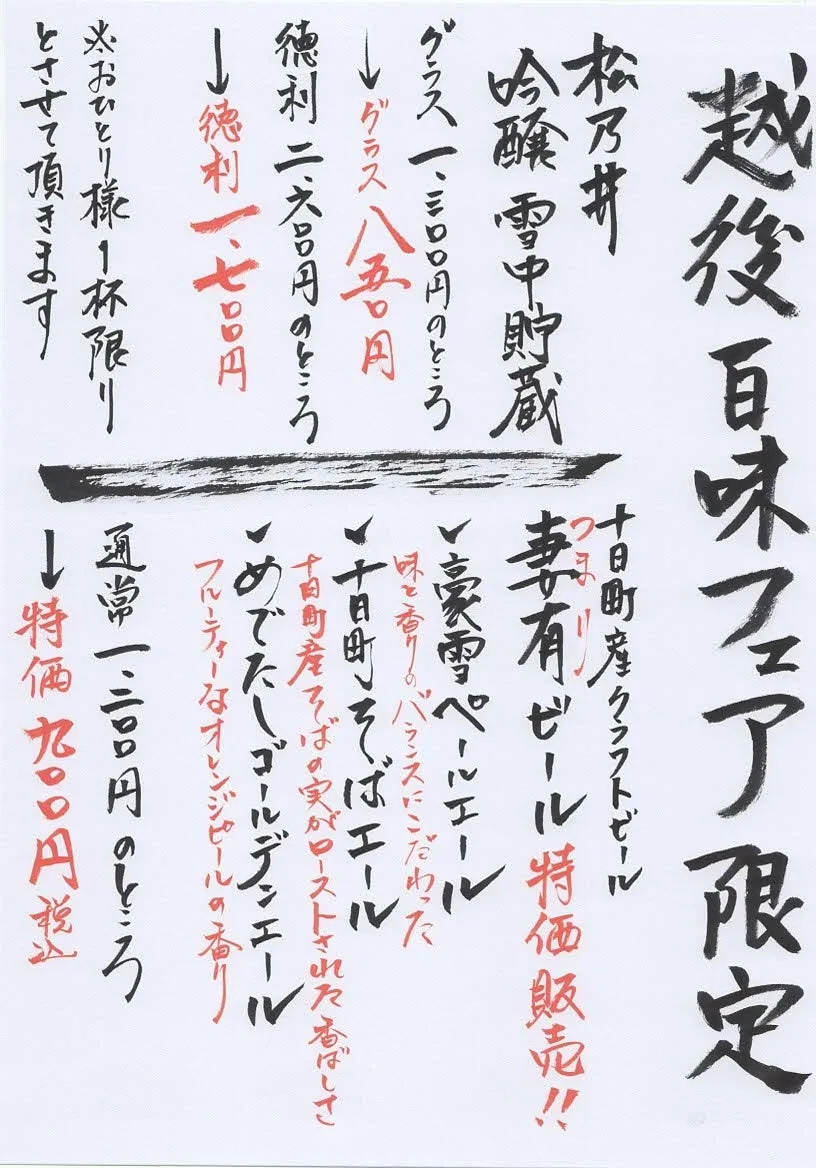 越後百味フェア限定
松乃井
吟醸 雪中貯蔵
グラス 一、三〇〇円のところ
↓グラス 八五〇円
徳利 二、六〇〇円のところ
↓徳利 一、七〇〇円
※おひとり様1杯限り
とさせて頂きます
十日町産クラフトビール
つまり
妻有ビール 特価販売!!
✓豪雪ペールエール
味と香りのバランスにこだわった
✓十日町そばエール
十日町産そばの実がローストされた香ばしさ
✓めでたしゴールデンエール
フルーティーなオレンジピールの香り
通常 一、二〇〇円 のところ
↓特価 九〇〇円 税込